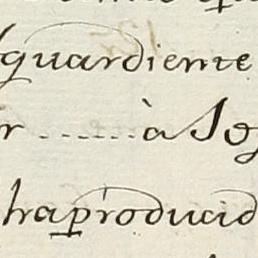 guardiente
r ...... à Seg
haproducid